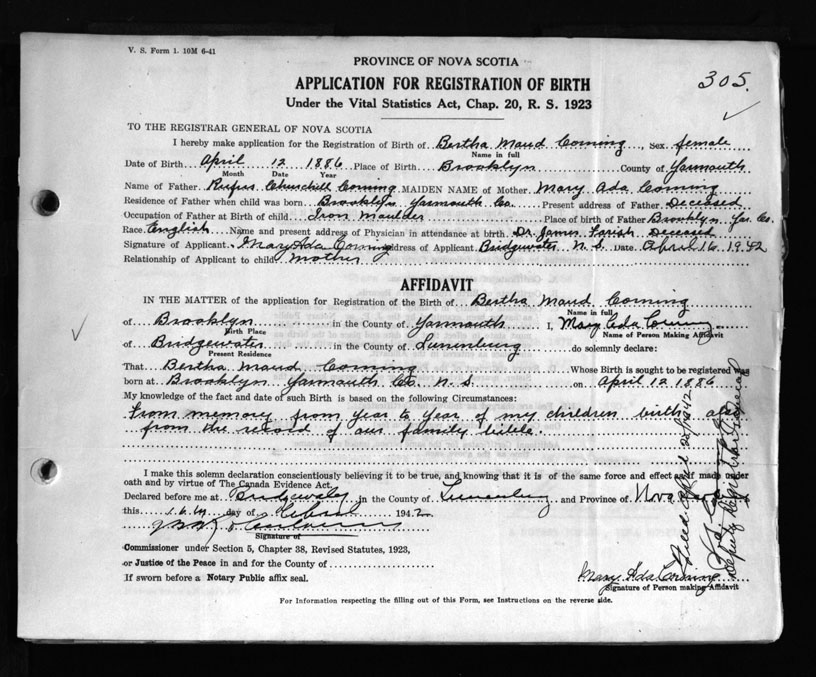 V. S. Form 1. 10M 6-41
PROVINCE OF NOVA SCOTIA
305.
APPLICATION FOR REGISTRATION OF BIRTH
Under the Vital Statistics Act, Chap. 20, R. S. 1923
TO THE REGISTRAR GENERAL OF NOVA SCOTIA
I hereby make application for the Registration of Birth of Bertha Maud Corning, Sex female
Name in full
Date of Birth April 12 1886 Place of Birth Brooklyn County of Yarmouth
Month Date Year
Name of Father Rufus Churchill Corning MAIDEN NAME of Mother Mary Ada Corning
Residence of Father when child was born Brooklyn Yarmouth Co. Present address of Father Deceased
Occupation of Father at Birth of child Iron Moulder Place of birth of Father Brooklyn Yar. Co.
Race English Name and present address of Physician in attendance at birth Dr. James Deceased
Signature of Applicant Mary Ada Corning address of Applicant Bridgewater N.S. Date April 16 1942
Relationship of Applicant to child mother
AFFIDAVIT
IN THE MATTER of the application for Registration of the Birth of Bertha Maud Corning
Name in full
of Brooklyn in the County of Yarmouth I, Mary Ada Corning
Birth Place Name of Person Making Affidavit
of Bridgewater in the County of Lunenburg do solemnly declare:
Present Residence
That Bertha Maud Corning Whose Birth is sought to be registered was
born at Brooklyn Yarmouth Co. N.S. on April 12 1886
My knowledge of the fact and date of such Birth is based on the following Circumstances:
From memory from year to year of my children birth, also
from the record of our family bible.
I make this solemn declaration conscientiously believing it to be true, and knowing that it is of the same force and effect as if made under
oath and by virtue of The Canada Evidence Act.
Declared before me at Bridgewater in the County of Lunenburg and Province of Nova Scotia
this 16th day of April 1942
Signature of
Commissioner under Section 5, Chapter 38, Revised Statutes, 1923,
or Justice of the Peace in and for the County of
If sworn before a Notary Public affix seal.
Mary Ada Corning
Signature of Person making Affidavit
For Information respecting the filling out of this Form, see Instructions on the reverse side.
Filed April
Deputy Registrar General